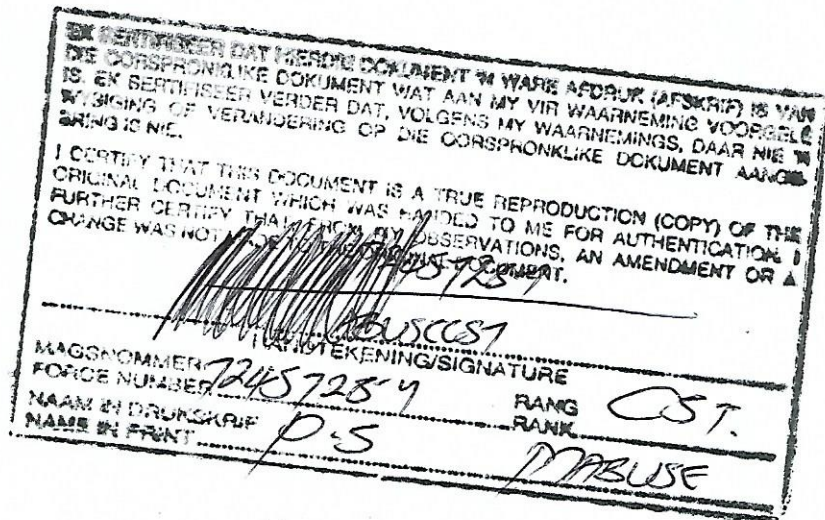 EK SERTIFISEER DAT HIERDIE DOKUMENT 'N WARE AFDRUK (AFSKRIF) IS VAN
DIE OORSPRONKLIKE DOKUMENT WAT AAN MY VIR WAARNEMING VOORGELÊ
IS. EK SERTIFISEER VERDER DAT, VOLGENS MY WAARNEMINGS, DAAR NIE 'N
WYSIGING OF VERANDERING OP DIE OORSPRONKLIKE DOKUMENT AANGE-
BRING IS NIE.
I CERTIFY THAT THIS DOCUMENT IS A TRUE REPRODUCTION (COPY) OF THE
ORIGINAL DOCUMENT WHICH WAS HANDED TO ME FOR AUTHENTICATION. I
FURTHER CERTIFY THAT, FROM MY OBSERVATIONS, AN AMENDMENT OR A
CHANGE WAS NOT MADE TO THE ORIGINAL DOCUMENT.
HANDTEKENING/SIGNATURE
MAGSNOMMER
FORCE NUMBER 7245728-4 RANG RANK CST.
NAAM IN DRUKSKRIF
NAME IN PRINT P.S MABUSE